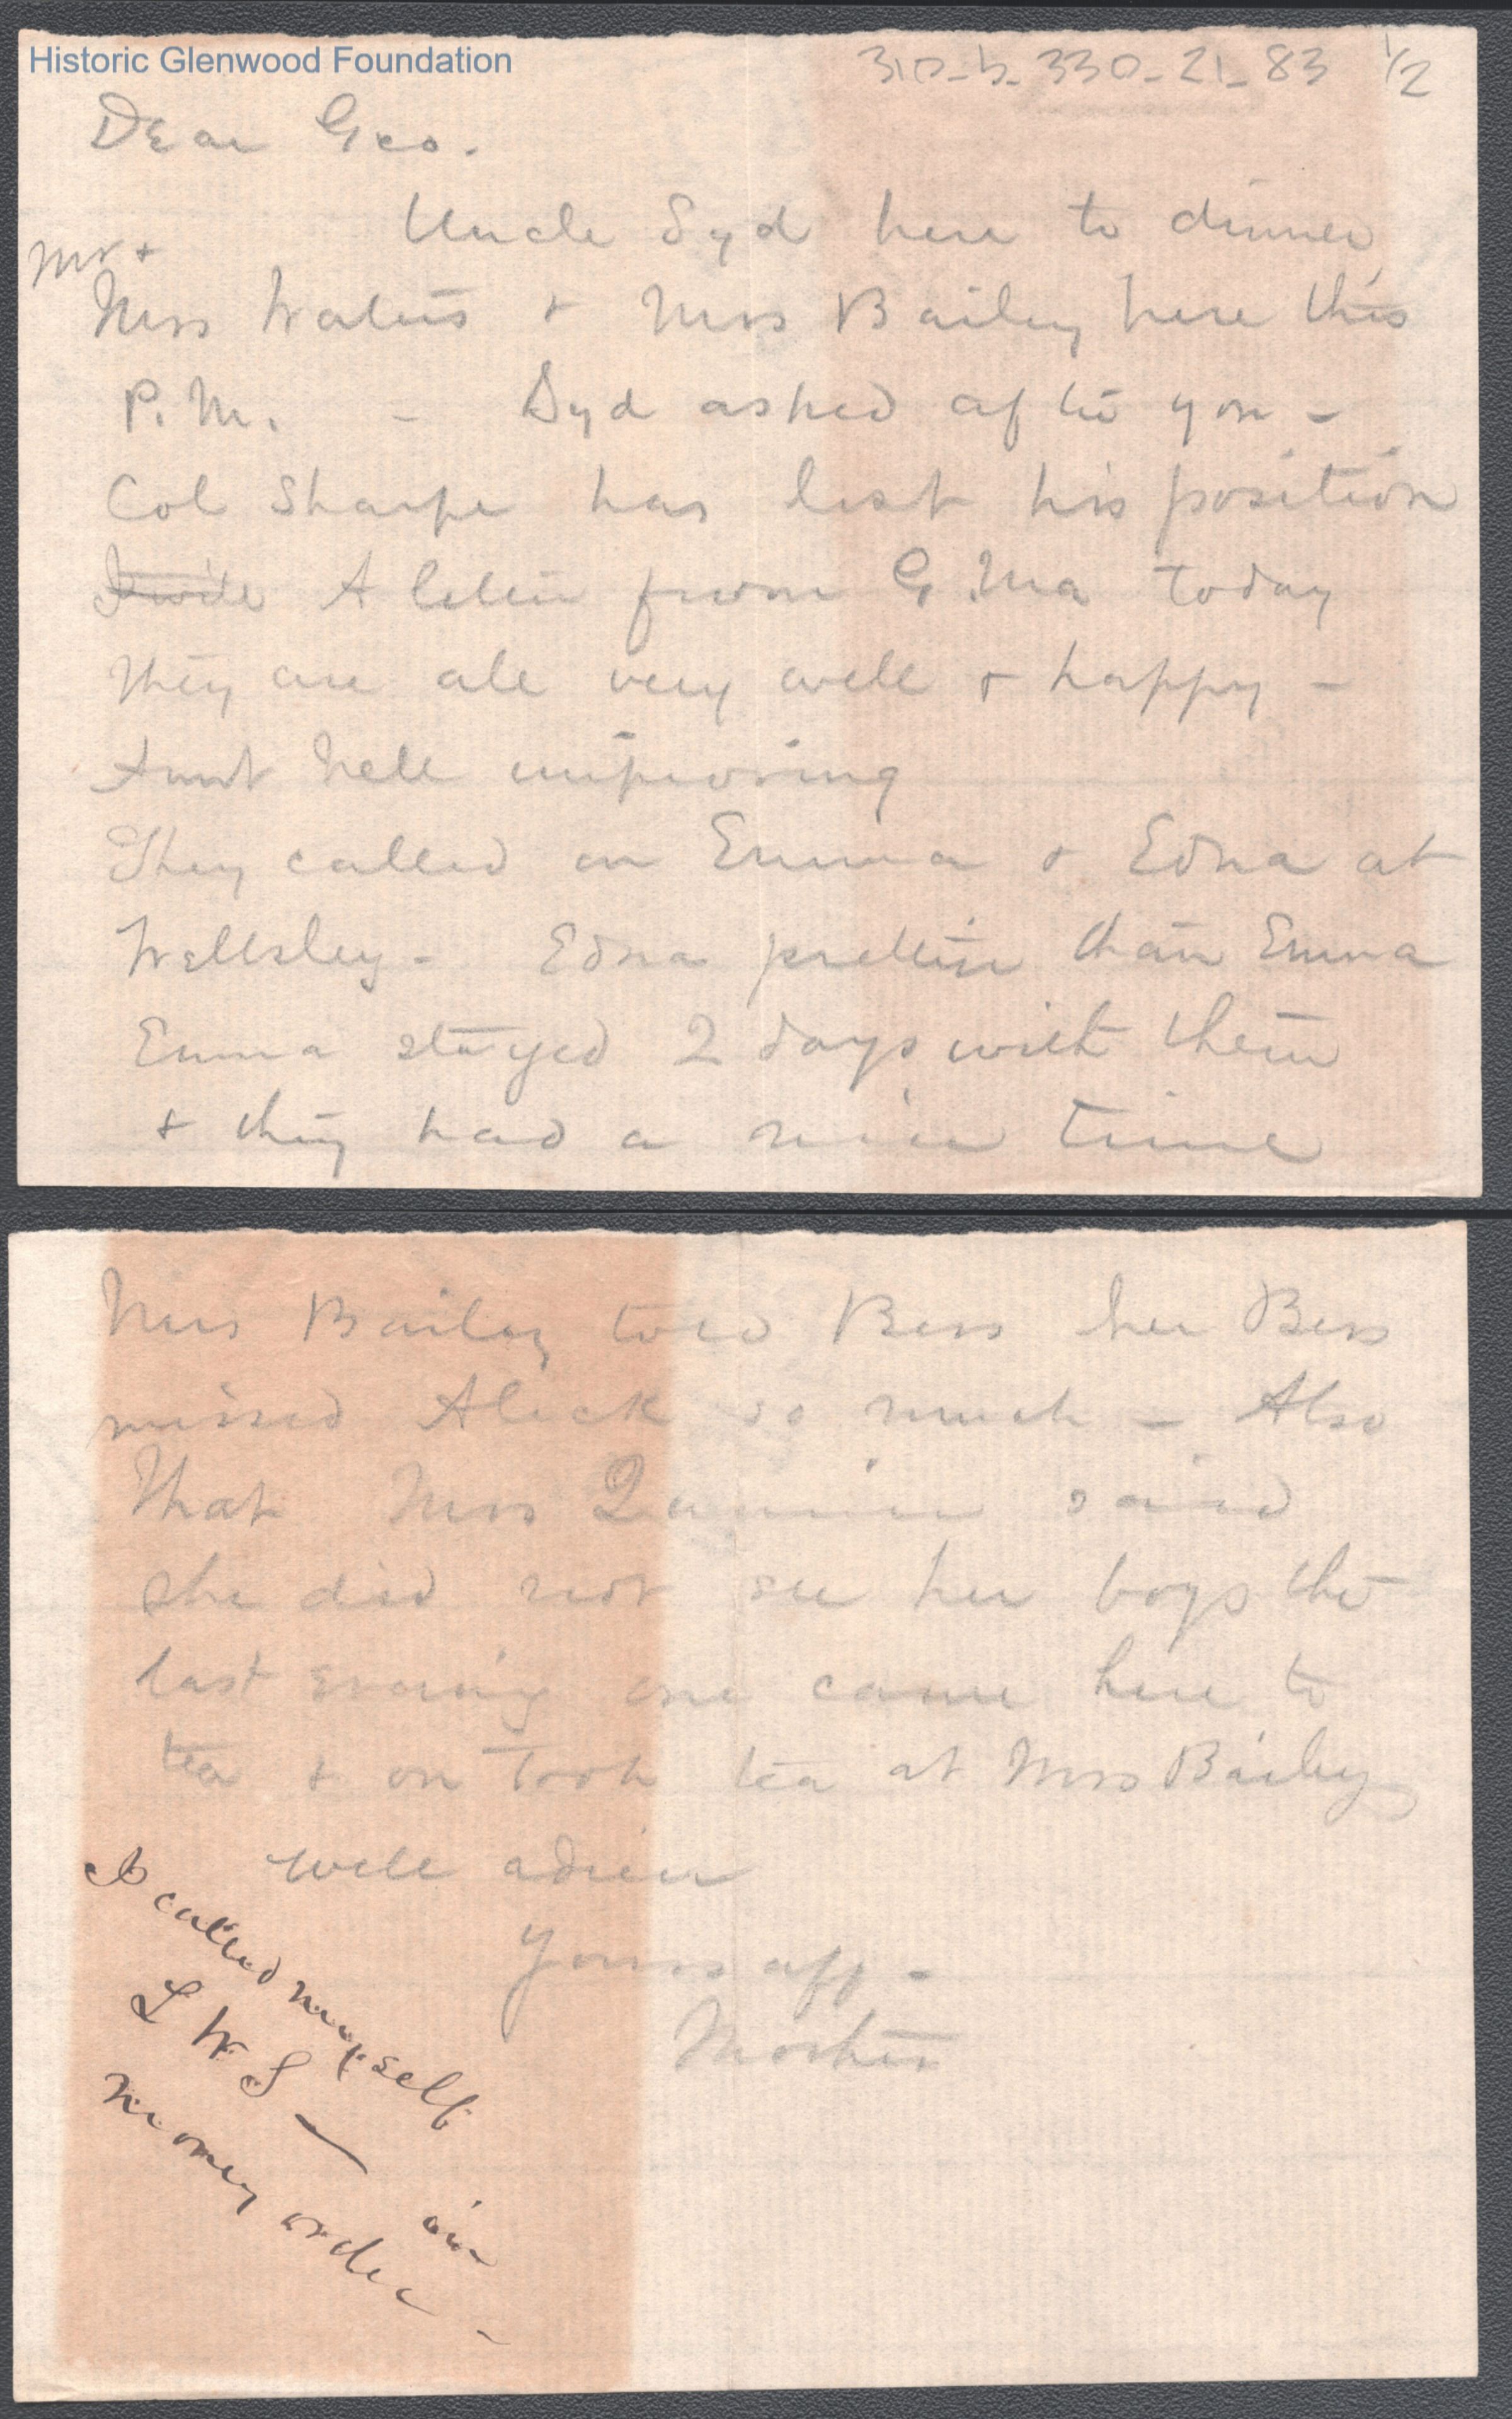 Historic Glenwood Foundation
310-b-330-21-83 1/2
Dear Geo.
Uncle Syd here to dinner
Mr +
Mrs Waters + Mrs Bailey here this
P.M. - Syd asked after you -
Col Sharpe has lost his position
A letter from G.Ma today
They are all very well + happy -
Aunt Nell improving
They called on Emma + Edna at
Wellsley - Edna prettier than Emma
Emma stayed 2 days with them
+ they had a nice time
Mrs Bailey told Bess her Bess
missed Aleck so much - Also
That Mrs said
she did not see her boys the
last evening one came here to
tea + on took tea at Mrs Bailey
well adieu
Yours aff -
Mother
I called myself
L W S — in
money order -